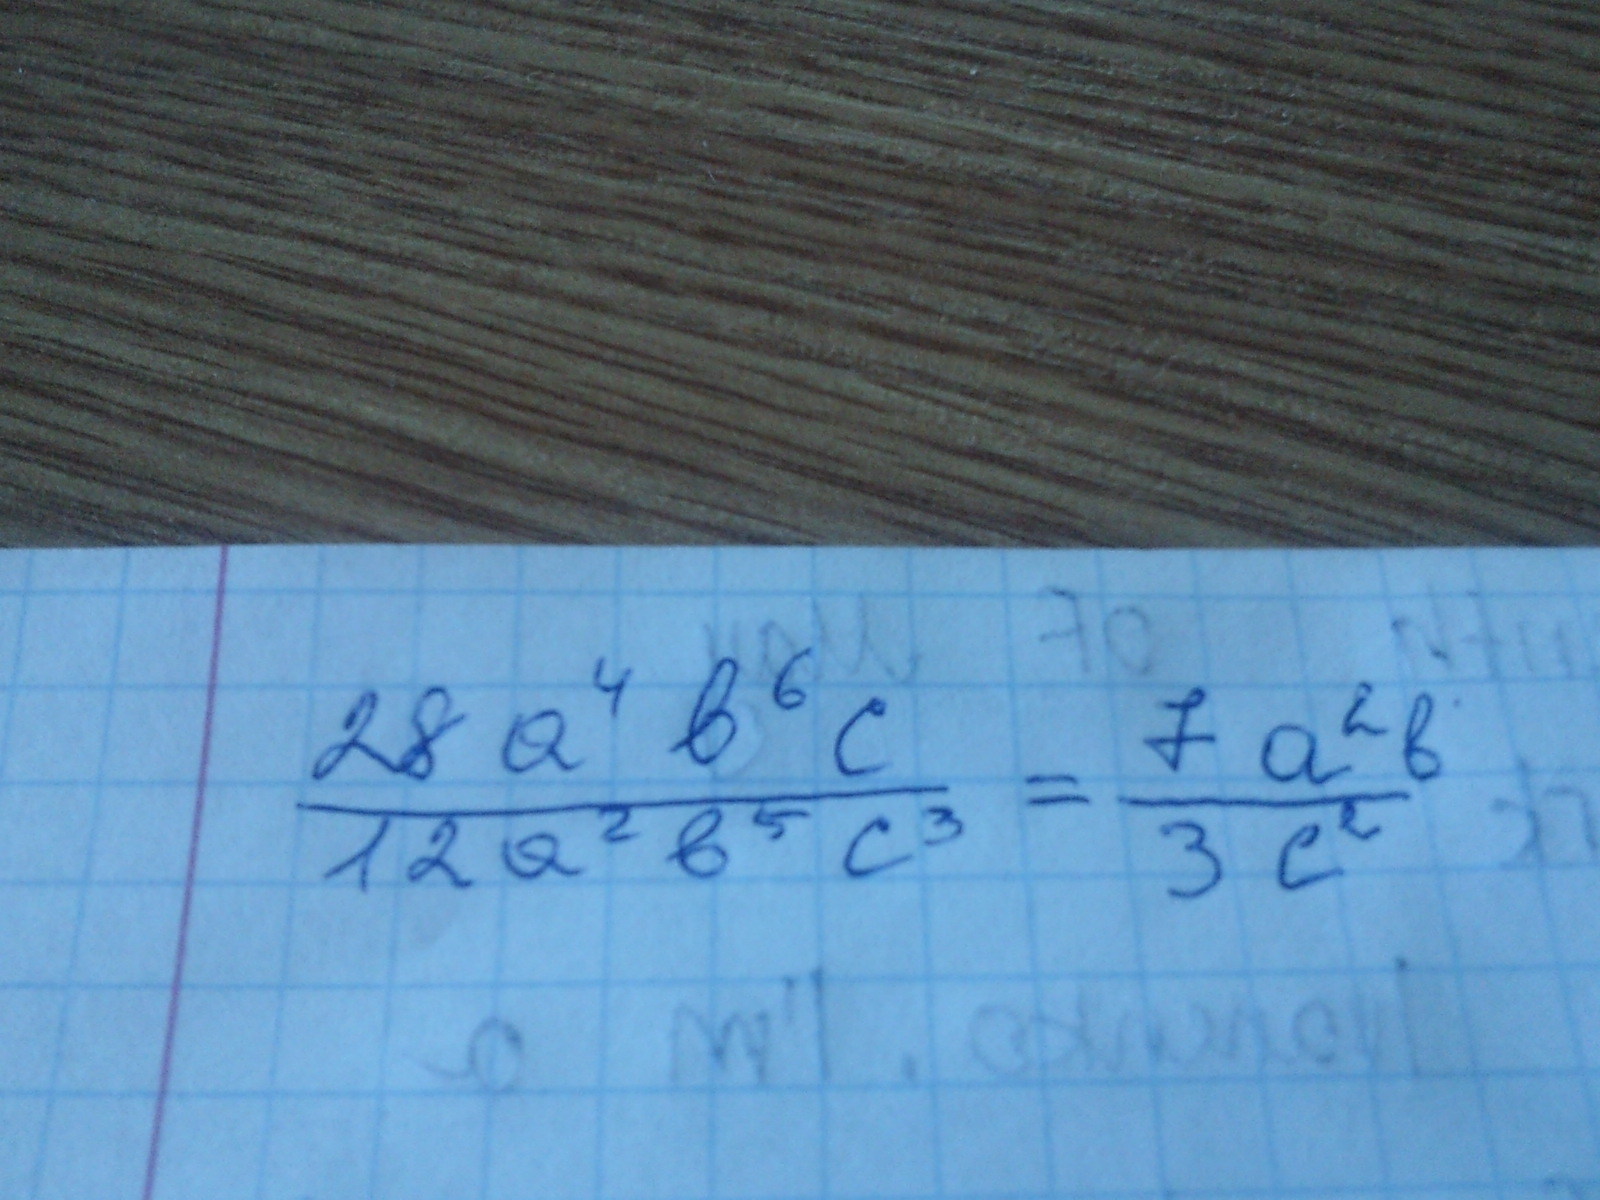 28 a⁴ b⁶ c / 12 a² b⁵ c³ = 7 a² b / 3 c²